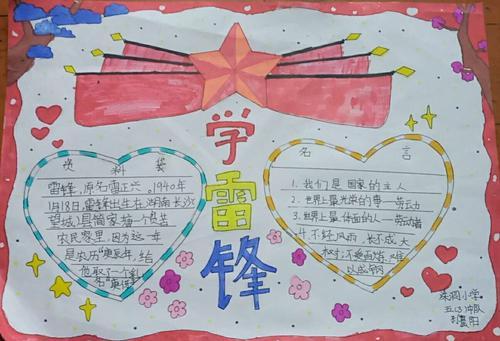 学
雷
锋
资料袋
雷锋，原名雷正兴。1940年
12月18日，雷锋出生在湖南长沙
望城县简家塘一个贫苦
农民家里，因为这一年
是农历“庚辰年，给
他取了一个
名言
1. 我们是国家的主人
2. 世界上最光荣的事—劳动
3. 世界上最体面的人—劳动者
4. 不经风雨，长不成大
树；不受百炼，难
以成钢
小学